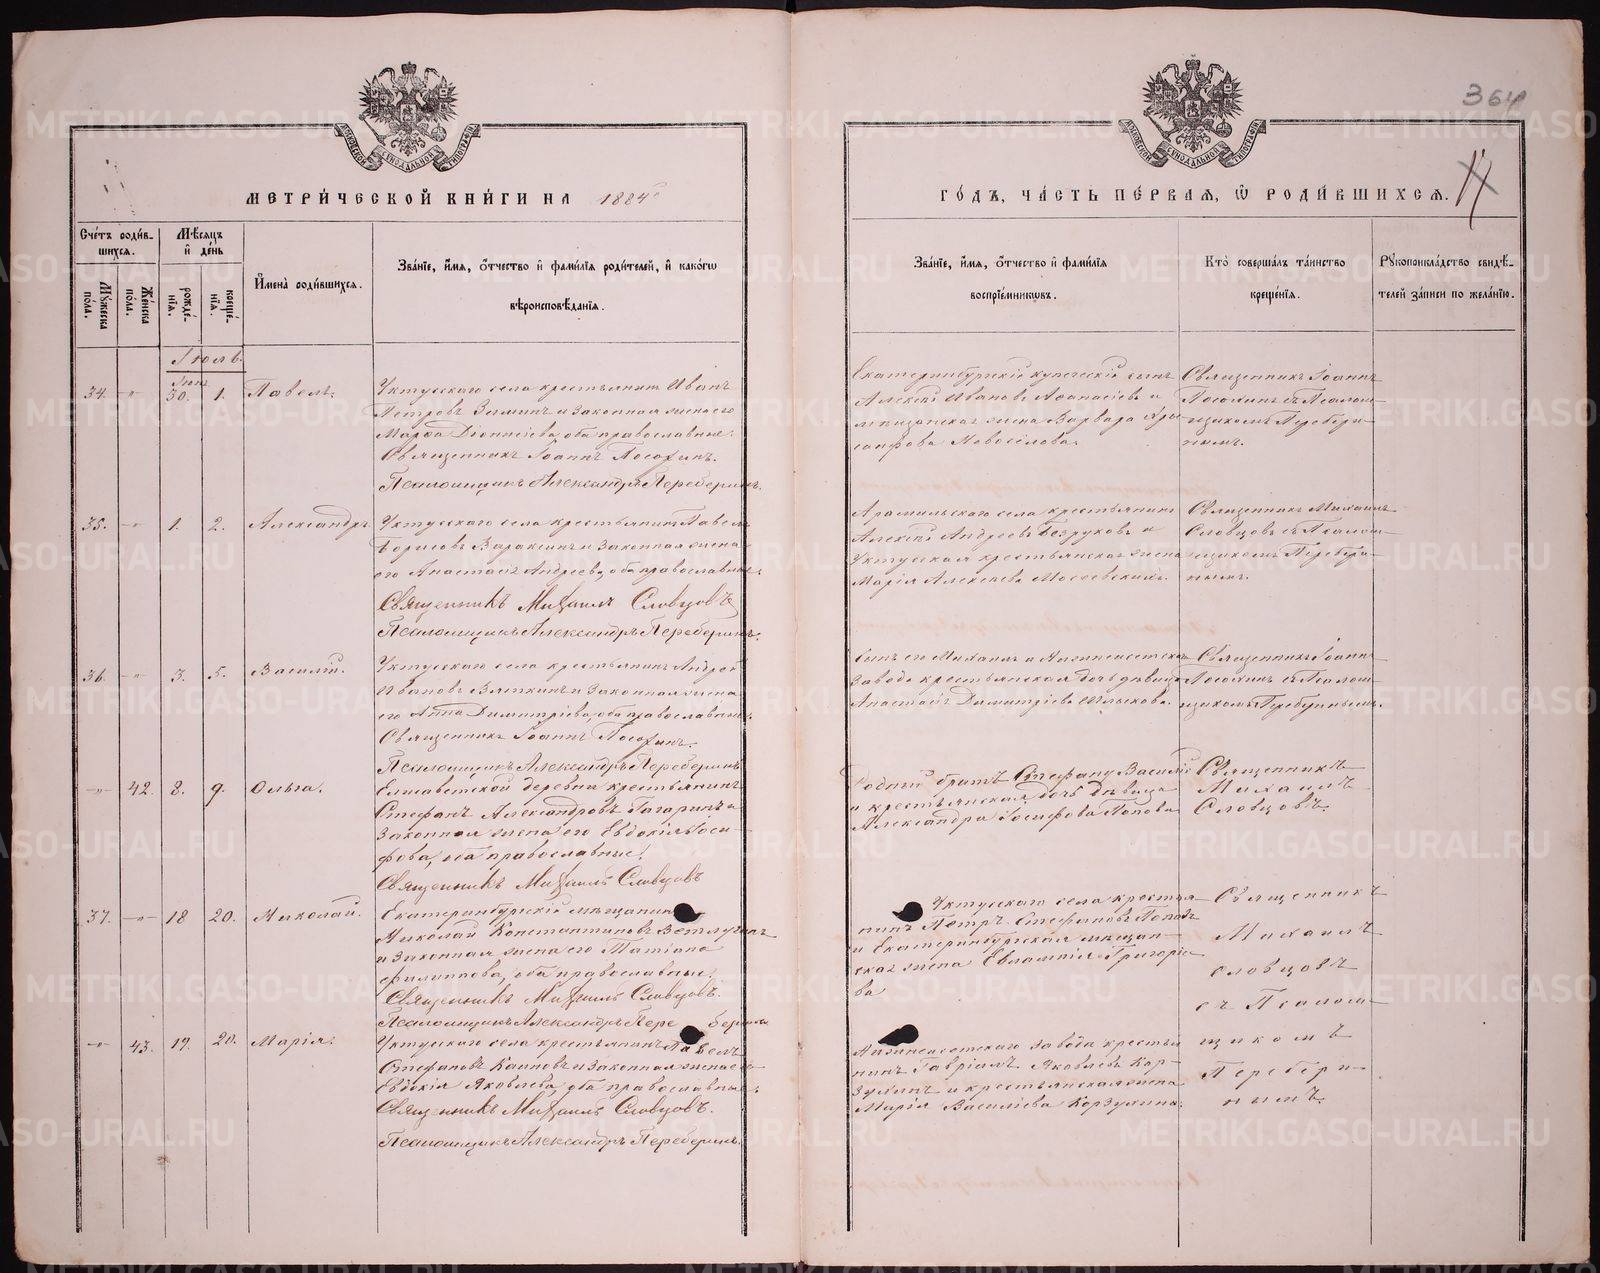 364
11
МОСКОВСКОЙ СѴНОДАЛЬНОЙ ТИПОГРАФІИ
МОСКОВСКОЙ СѴНОДАЛЬНОЙ ТИПОГРАФІИ
МЕТРИ́ЧЕСКОЙ КНИ́ГИ НА 1884
ГО́ДЪ, ЧА́СТЬ ПЕ́РВАЯ, Ѡ РОДИ́ВШИХСЯ.
Сче́тъ роди́в-
шихся.
Мѣ́сяцъ
и де́нь
Мꙋжеска пола.
Же́нска пола.
рожде́-
нїя.
креще́-
нїя.
И҆мена̀ роди́вшихся.
Зва́нїе, и҆́мя, ѻ҆́тчество и҆ фами́лїя роди́телей, и҆ како́гѡ
вѣроисповѣ́данїя.
Зва́нїе, и҆́мя, ѻ҆́тчество и҆ фами́лїя
воспрїе́мниковъ.
Кто̀ соверша́лъ та́инство
креще́нїя.
Рꙋкоприкла́дство свидѣ́-
телей за́писи по жела́нїю.
Іюль.
Іюн.
34. -"- 30. 1. Павелъ.
Уктусскаго села крестьянинъ Иванъ
Петровъ Зиминъ и законная жена его
Марѳа Діонисіева, оба православные.
Священникъ Іоаннъ
Псаломщикъ Александръ Переберинъ.
Екатеринбургскій купеческій сынъ
Алексѣй Ивановъ Аѳанасіевъ и
жена Варвара
Новоселова.
Священникъ Іоаннъ
съ Псалом-
щикомъ Перебери-
нымъ.
35. -"- 1. 2. Александръ
Уктусскаго села крестьянинъ Павелъ
Борисовъ Вараксинъ и законная жена
его Анастасія Андреева, оба православные.
Священникъ Михаилъ Словцовъ
Псаломщикъ Александръ Переберинъ.
Арамильскаго села крестьянинъ
Алексѣй Андреевъ Безруковъ и
Уктусская крестьянская жена
Марія Алексѣева
Священникъ Михаилъ
Словцовъ съ Псалом-
щикомъ Перебери-
нымъ.
36. -"- 3. 5. Василій.
Уктусскаго села крестьянинъ Андрей
Ивановъ Вяткинъ и законная жена
его Анна Димитріева, оба православные.
Священникъ Іоаннъ
Псаломщикъ Александръ Переберинъ
Сынъ его Михаилъ и Нижнеисетскаго
завода крестьянская дочь дѣвица
Анастасія Димитріева
Священникъ Іоаннъ
съ Псалом-
щикомъ Переберинымъ.
-"- 42. 8. 9. Ольга.
Елисаветской деревни крестьянинъ
Стефанъ Александровъ Гагаринъ и
законная жена его Евдокія Іоси-
фова, оба православные.
Священникъ Михаилъ Словцовъ
Родный братъ Стефану Василій
и крестьянская дочь дѣвица
Александра Іосифова Попова
Священникъ
Михаилъ
Словцовъ.
37. -"- 18 20. Николай.
Екатеринбургскій мѣщанинъ
Николай Константиновъ Ветлугинъ
и законная жена его Татіана
Филиппова, оба православные.
Священникъ Михаилъ Словцовъ.
Псаломщикъ Александръ Переберинъ
Уктусскаго села крестья-
нинъ Петръ Стефановъ Поповъ
и Екатеринбургская мѣщан-
ская жена Евлампія Григоріе-
ва
Священникъ
Михаилъ
Словцовъ
съ Псалом-
щикомъ
Перебери-
нымъ.
-"- 43. 19. 20. Марія.
Уктусскаго села крестьянинъ Павелъ
Стефановъ и законная жена его
Евдокія Яковлева, оба православные.
Священникъ Михаилъ Словцовъ.
Псаломщикъ Александръ Переберинъ.
Нижнеисетскаго завода крестья-
нинъ Гавріилъ Яковлевъ Кор-
зухинъ и крестьянская жена
Марія Василіева Корзухина.
METRIKI.GASO-URAL.RU